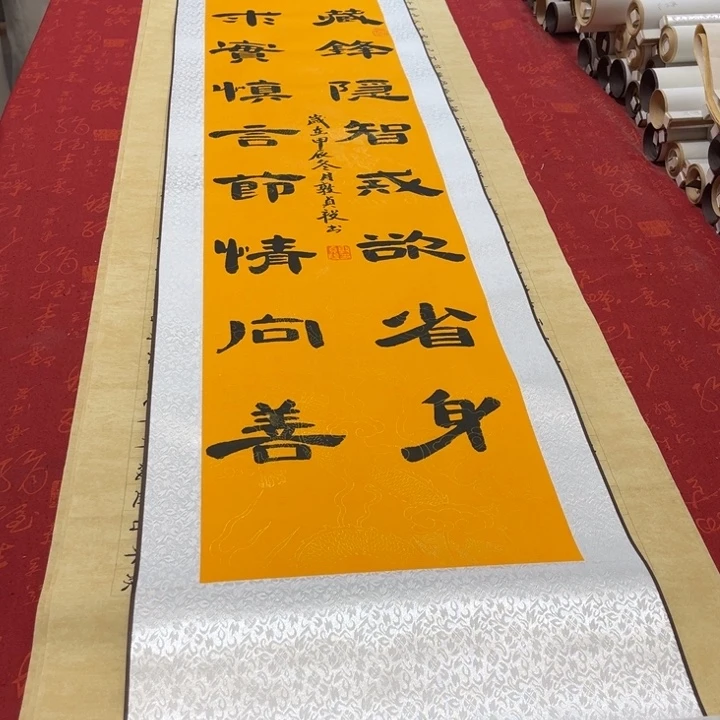 藏鋒隐智戒欲省身
求實慎言節情向善
歲在甲辰冬月